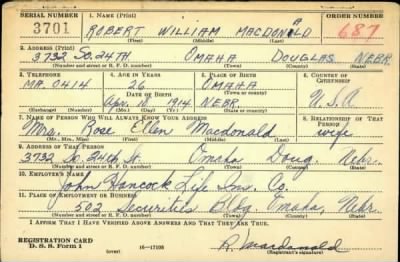 SERIAL NUMBER 1. NAME (Print) ORDER NUMBER
3701 ROBERT WILLIAM MACDONALD 687
(First) (Middle) (Last)
2. ADDRESS (Print)
3732 SO. 24TH OMAHA DOUGLAS NEBR.
(Number and street or R. F. D. number) (Town) (County) (State)
3. TELEPHONE 4. AGE IN YEARS 5. PLACE OF BIRTH 6. COUNTRY OF CITIZENSHIP
MA. 0414 26 OMAHA
DATE OF BIRTH (Town or county)
Apr. 18 1914 NEBR. U.S.A
(Exchange) (Number) (Mo.) (Day) (Yr.) (State or country)
7. NAME OF PERSON WHO WILL ALWAYS KNOW YOUR ADDRESS 8. RELATIONSHIP OF THAT PERSON
Mrs. Rose Ellen Macdonald wife
(Mr., Mrs., Miss) (First) (Middle) (Last)
9. ADDRESS OF THAT PERSON
3732 So. 24th St. Omaha Doug. Nebr.
(Number and street or R. F. D. number) (Town) (County) (State)
10. EMPLOYER'S NAME
John Hancock Life Ins. Co.
11. PLACE OF EMPLOYMENT OR BUSINESS
502 Securities Bldg. Omaha, Nebr.
(Number and street or R. F. D. number) (Town) (County) (State)
I AFFIRM THAT I HAVE VERIFIED ABOVE ANSWERS AND THAT THEY ARE TRUE.
REGISTRATION CARD
D. S. S. Form 1 (over) 16—17105 R. Macdonald
(Registrant's signature)